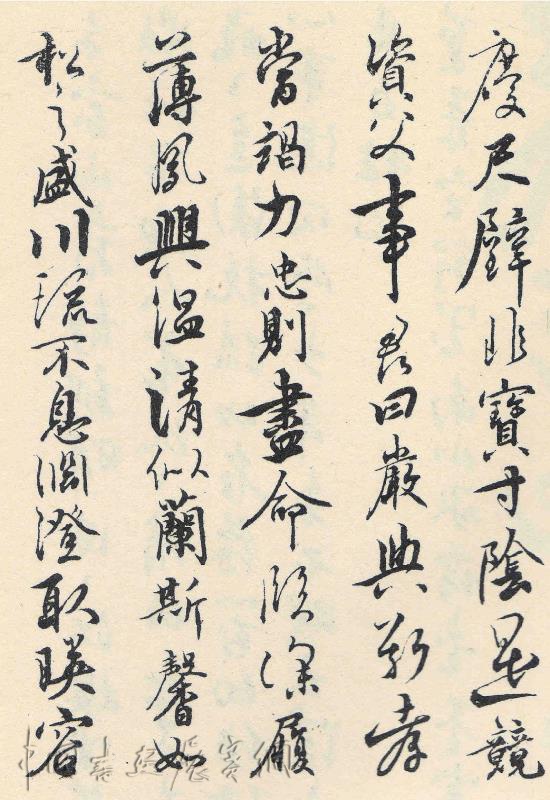 慶尺璧非寶寸陰是競
資父事君曰嚴與敬孝
當竭力忠則盡命臨深履
薄夙興温清似蘭斯馨如
松之盛川流不息淵澄取暎容